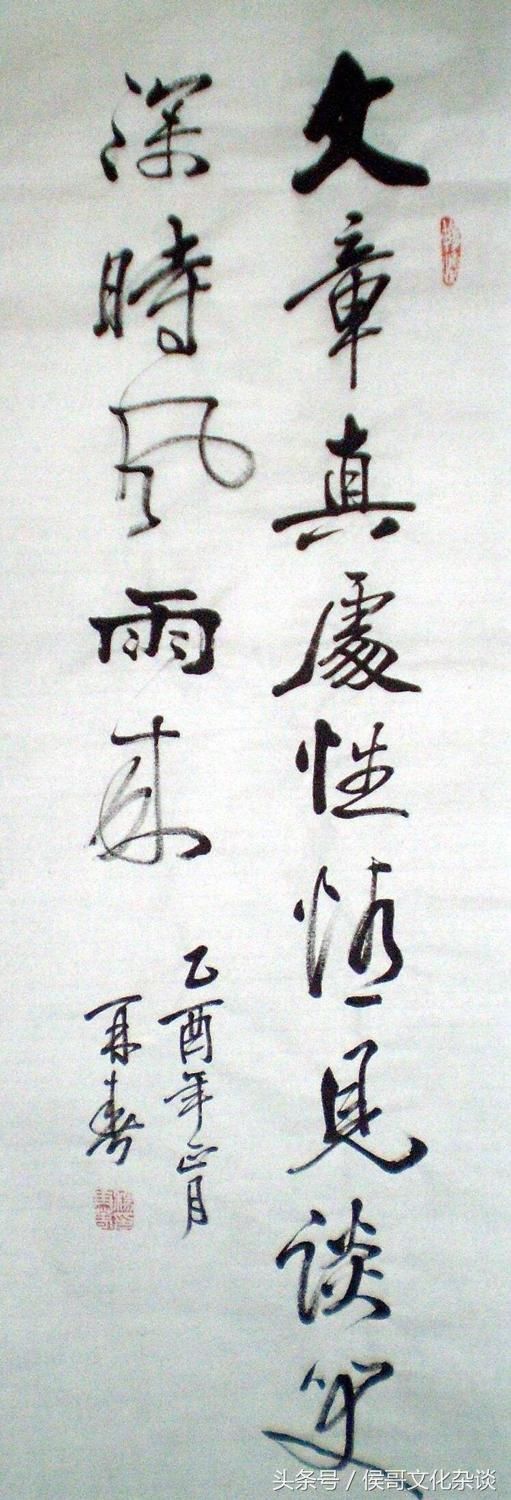 文章真處性情見談笑
深時風雨來
乙酉年正月
再春
头条号 / 侯哥文化杂谈